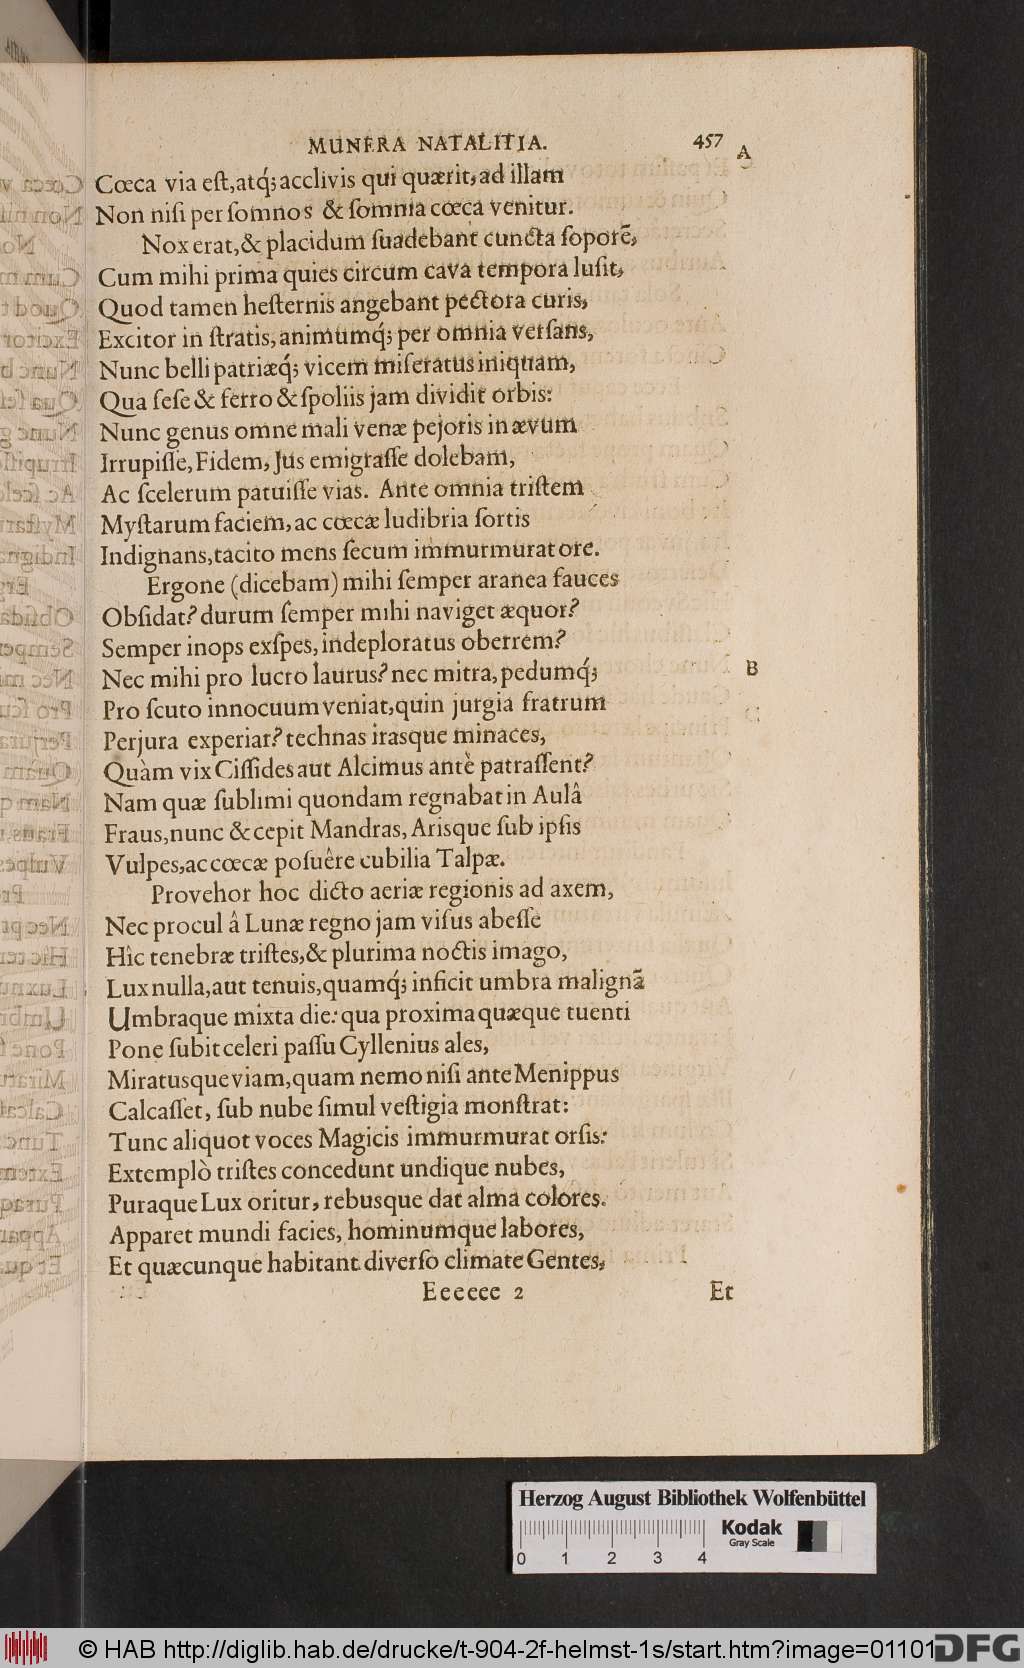 MUNERA NATALITIA. 457
A
Cœca via eſt, atq́; acclivis qui quærit, ad illam
Non niſi per ſomnos & ſomnia cœca venitur.
Nox erat, & placidum ſuadebant cuncta ſoporē,
Cum mihi prima quies circum cava tempora luſit,
Quod tamen heſternis angebant pectora curis,
Excitor in ſtratis, animumq́; per omnia verſans,
Nunc belli patriæq́; vicem miſeratus iniquam,
Qua ſeſe & ferro & ſpoliis jam dividit orbis:
Nunc genus omne mali venæ pejoris in ævum
Irrupiſſe, Fidem, Jus emigraſſe dolebam,
Ac ſcelerum patuiſſe vias. Ante omnia triſtem
Myſtarum faciem, ac cœcæ ludibria ſortis
Indignans, tacito mens ſecum immurmurat ore.
Ergone (dicebam) mihi ſemper aranea fauces
Obſidat? durum ſemper mihi naviget æquor?
Semper inops exſpes, indeploratus oberrem?
Nec mihi pro lucro laurus? nec mitra, pedumq́;
B
Pro ſcuto innocuum veniat, quin jurgia fratrum
Perjura experiar? technas irasque minaces,
Quàm vix Ciſſides aut Alcimus antè patraſſent?
Nam quæ ſublimi quondam regnabat in Aulâ
Fraus, nunc & cepit Mandras, Arisque ſub ipſis
Vulpes, ac cœcæ poſuêre cubilia Talpæ.
Provehor hoc dicto aeriæ regionis ad axem,
Nec procul â Lunæ regno jam viſus abeſſe
Hîc tenebræ triſtes, & plurima noctis imago,
Lux nulla, aut tenuis, quamq́; inficit umbra malignā
Umbraque mixta die: qua proxima quæque tuenti
Pone ſubit celeri paſſu Cyllenius ales,
Miratusque viam, quam nemo niſi ante Menippus
Calcaſſet, ſub nube ſimul veſtigia monſtrat:
Tunc aliquot voces Magicis immurmurat orſis:
Extemplò triſtes concedunt undique nubes,
Puraque Lux oritur, rebusque dat alma colores.
Apparet mundi facies, hominumque labores,
Et quæcunque habitant diverſo climate Gentes,
Eeeeee 2 Et
Herzog August Bibliothek Wolfenbüttel
Kodak
Gray Scale
0 1 2 3 4
© HAB http://diglib.hab.de/drucke/t-904-2f-helmst-1s/start.htm?image=01101
DFG